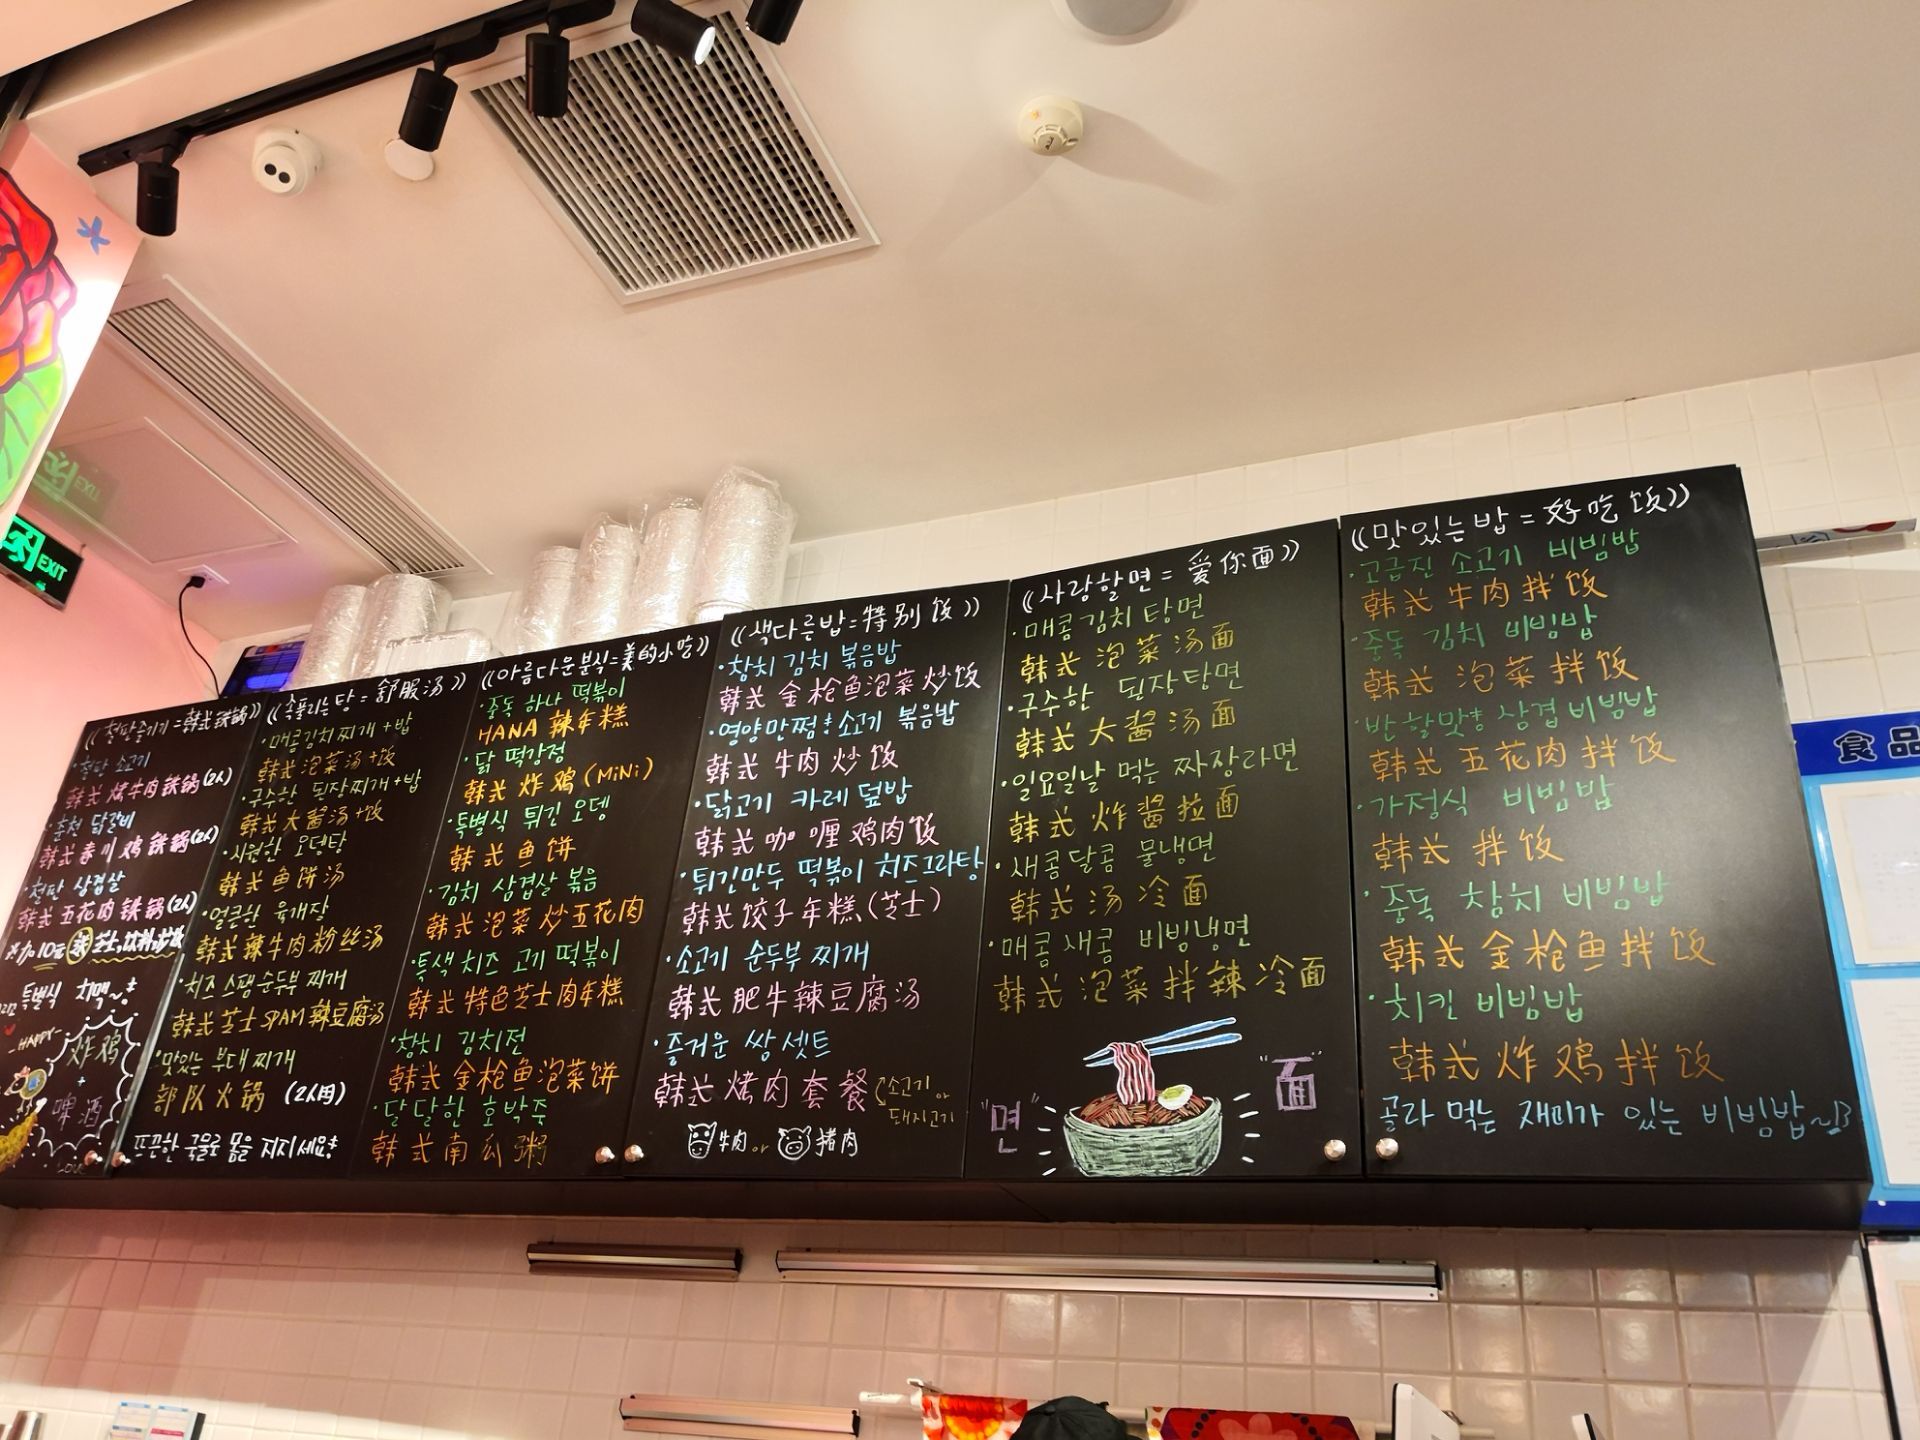 ((철판즐기기=韩式铁锅))
·철판 소고기
韩式烤牛肉铁锅(2人)
·춘천 닭갈비
韩式春川鸡铁锅(2人)
·철판 삼겹살
韩式五花肉铁锅(2人)
특별식 치맥~!
HAPPY
炸鸡
+
啤酒
LOVE
((속풀리는탕=舒服汤))
·매콤김치찌개+밥
韩式泡菜汤+饭
·구수한 된장찌개+밥
韩式大酱汤+饭
·시원한 오뎅탕
韩式鱼饼汤
·얼큰한 육개장
韩式辣牛肉粉丝汤
·치즈스팸순두부찌개
韩式芝士SPAM辣豆腐汤
·맛있는 부대찌개
部队火锅 (2人用)
뜨끈한 국물로 몸을 지지세요!
((아름다운분식=美的小吃))
·중독 하나 떡볶이
HANA 辣年糕
·닭 떡강정
韩式 炸鸡 (MiNi)
·특별식 튀긴오뎅
韩式鱼饼
·김치 삼겹살 볶음
韩式泡菜炒五花肉
·특색치즈 고기 떡볶이
韩式特色芝士肉年糕
·참치 김치전
韩式金枪鱼泡菜饼
·달달한 호박죽
韩式南瓜粥
((색다른밥=特别饭))
·참치김치 볶음밥
韩式金枪鱼泡菜炒饭
·영양만점!소고기 볶음밥
韩式牛肉炒饭
·닭고기 카레덮밥
韩式咖喱鸡肉饭
·튀긴만두 떡볶이 치즈그라탕
韩式饺子年糕(芝士)
·소고기 순두부찌개
韩式肥牛辣豆腐汤
·즐거운 쌍셋트
韩式烤肉套餐 소고기 or 돼지고기
牛肉 or 猪肉
((사랑할면=爱你面))
·매콤김치탕면
韩式泡菜汤面
·구수한 된장탕면
韩式大酱汤面
·일요일날 먹는 짜장라면
韩式炸酱拉面
·새콤달콤 물냉면
韩式汤冷面
·매콤새콤 비빔냉면
韩式泡菜拌辣冷面
"면"
"面"
((맛있는밥=好吃饭))
·고급진 소고기 비빔밥
韩式牛肉拌饭
·중독 김치 비빔밥
韩式泡菜拌饭
·반할맛! 삼겹비빔밥
韩式五花肉拌饭
·가정식 비빔밥
韩式拌饭
·중독 참치 비빔밥
韩式金枪鱼拌饭
·치킨 비빔밥
韩式炸鸡拌饭
골라 먹는 재미가 있는 비빔밥~!
食品
EXIT